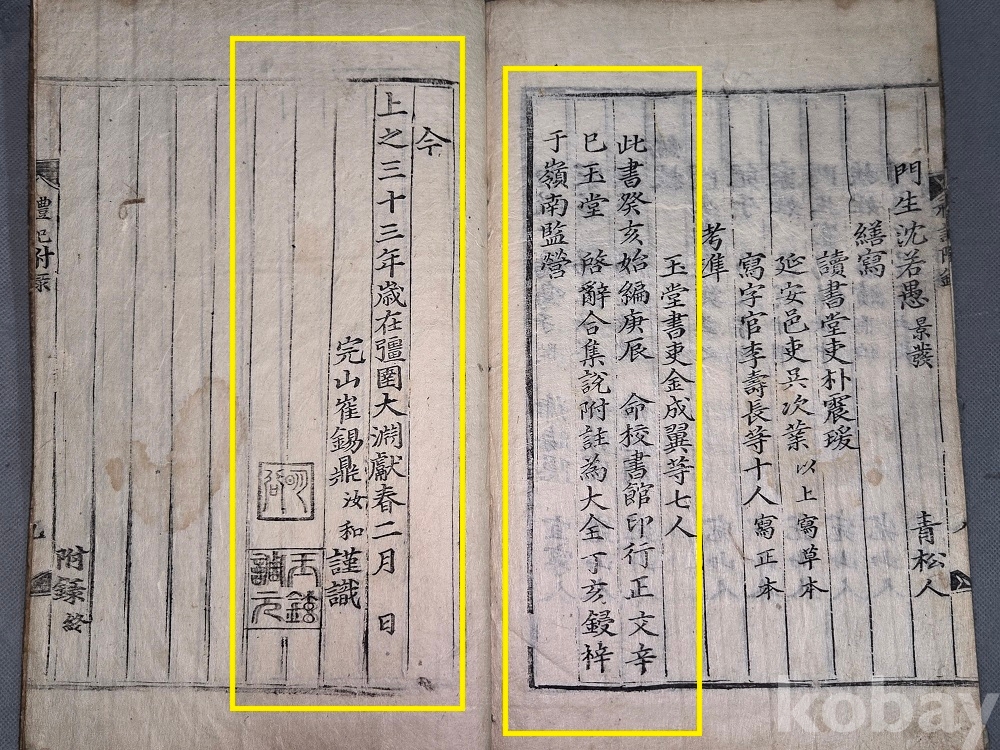 門生沈若愚 景發 青松人
繕寫
讀書堂吏朴震瑗
延安邑吏吳次葉 以上寫草本
寫字官李壽長等十人 寫正本
考準
玉堂書吏金成翼等七人
此書癸亥始編庚辰 命校書館印行正文辛
巳玉堂 啓辭合集說附註為大全丁亥鋟梓
于嶺南監營
今
上之三十三年歲在彊圉大淵獻春二月 日
完山崔錫鼎汝和謹識
附錄終
禮記附錄
九
kobay